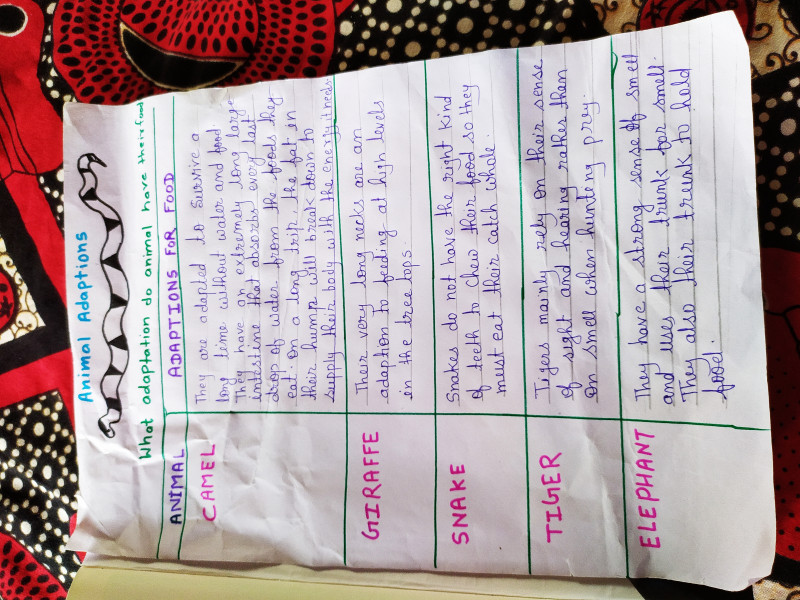 Animal Adaptions
What adaptation do animal have their food
ANIMAL ADAPTIONS FOR FOOD
CAMEL They are adapted to survive a
long time without water and food.
They have an extremely long large
intestine that absorbs every last
drop of water from the foods they
eat. on a long trip, the fat in
their hump will break down to
supply their body with the energy it needs.
GIRAFFE Their very long necks are an
adaption to feeding at high levels
in the tree tops.
SNAKE Snakes do not have the right kind
of teeth to chew their food so they
must eat their catch whole.
TIGER Tigers mainly rely on their sense
of sight and hearing rather than
on smell when hunting prey.
ELEPHANT They have a strong sense of smell
and uses their trunk for smell.
They also their trunk to hold
food.